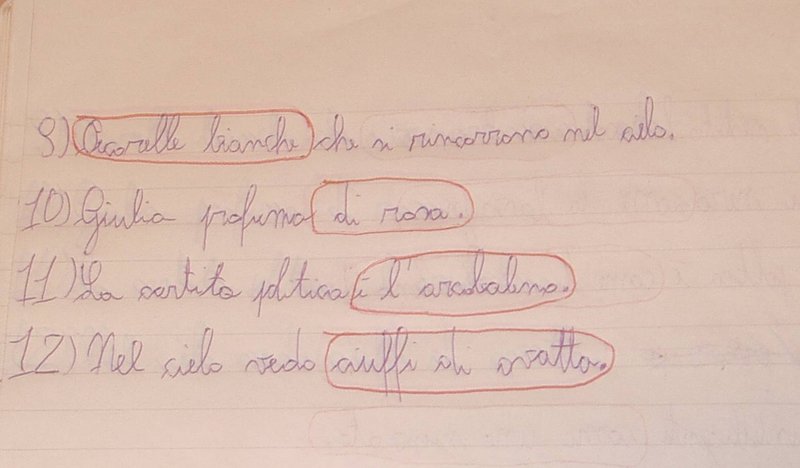 9) Pecorelle bianche che si rincorrono nel cielo.
10) Giulia profuma di rosa.
11) La è l'arcobaleno.
12) Nel cielo vedo ciuffi di ovatta.